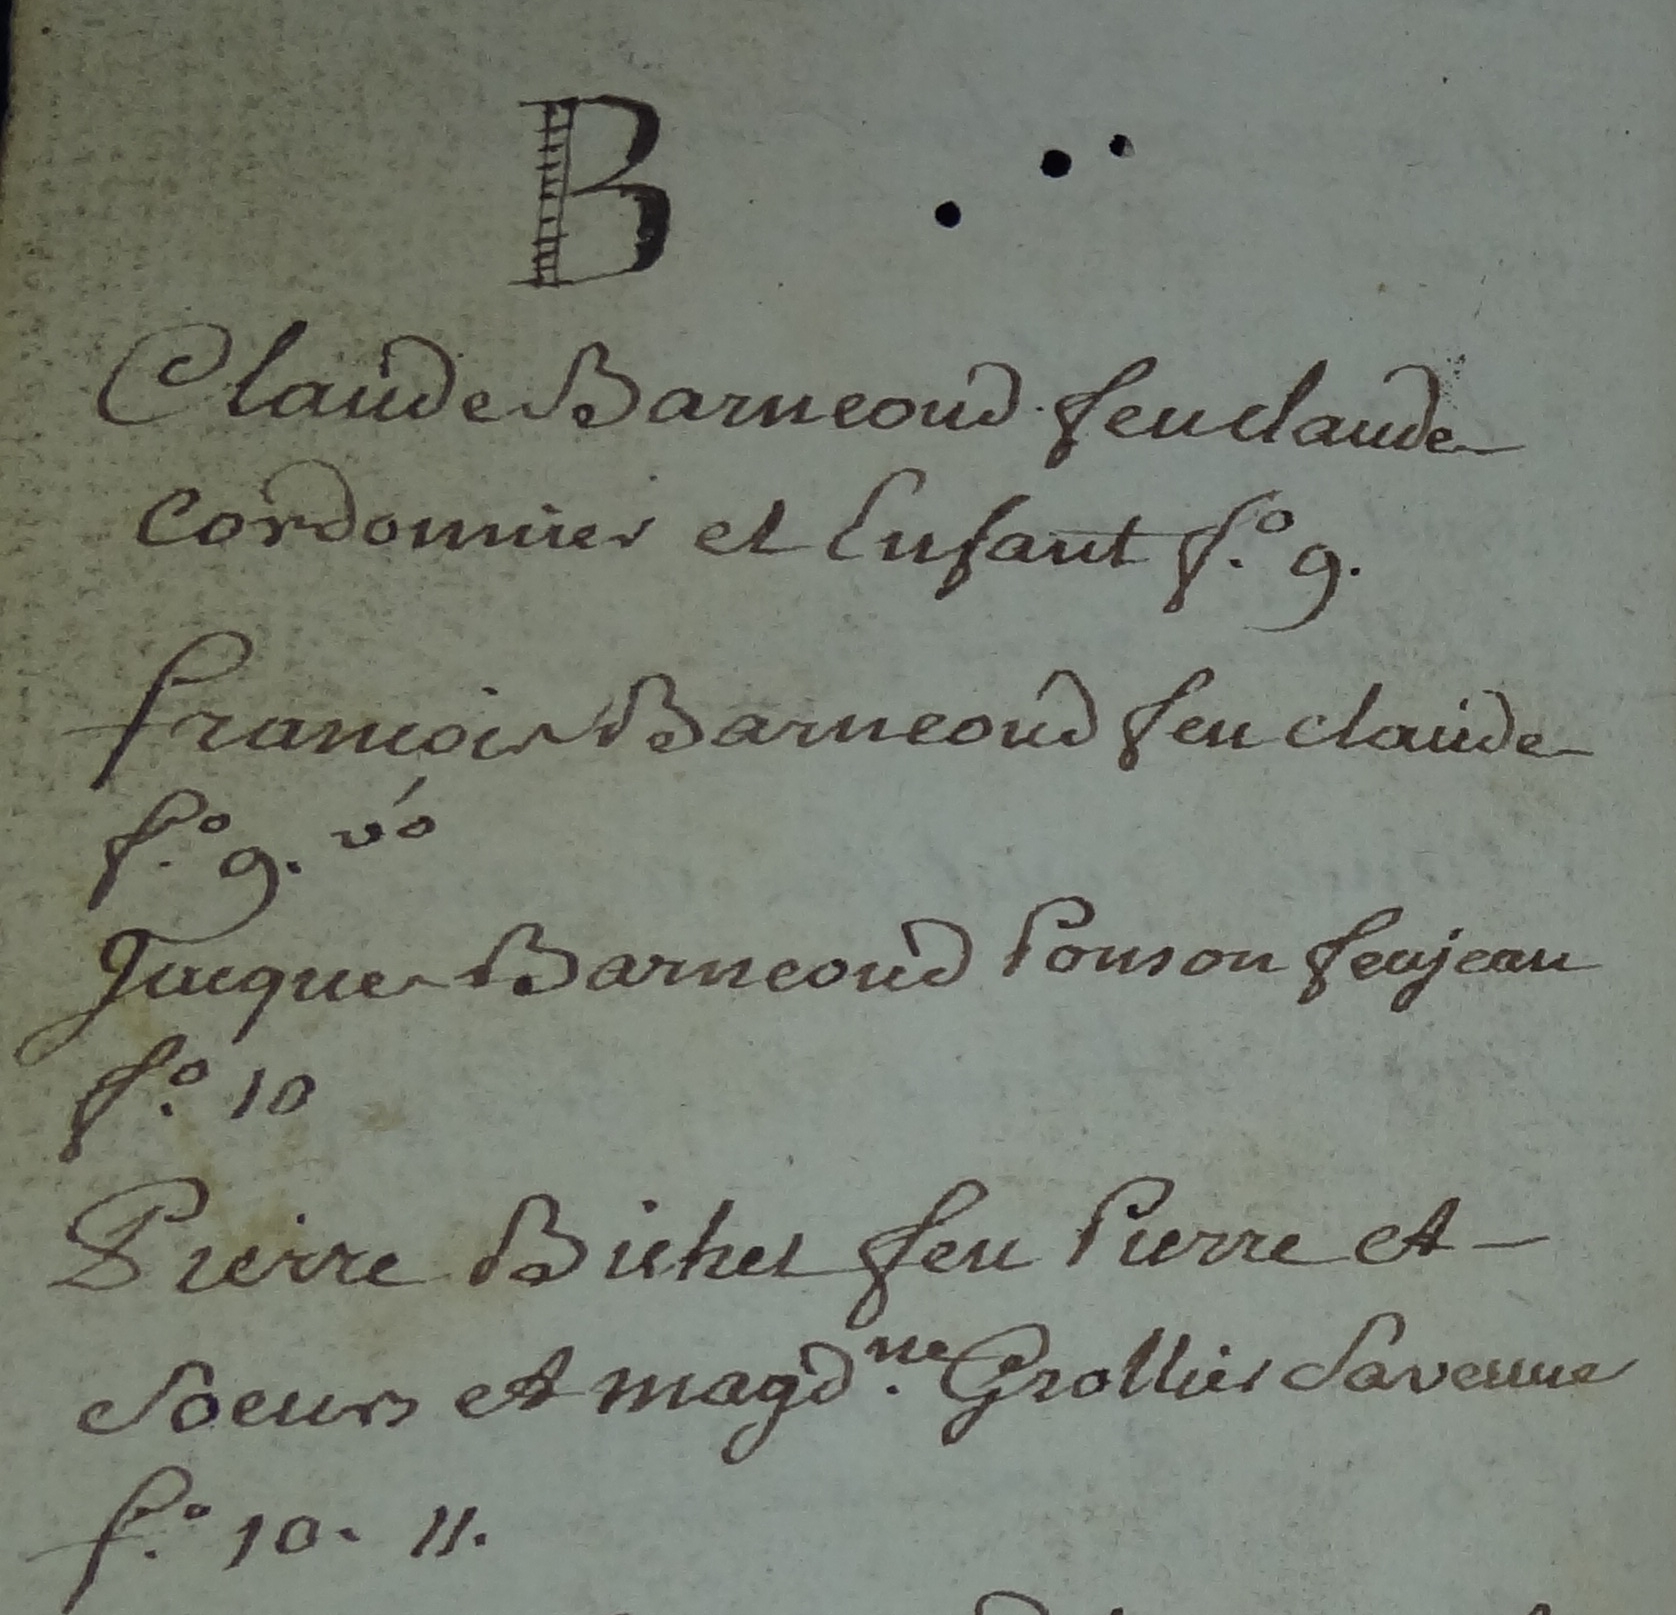 B
Claude Barneoud feu claude
Cordonnier et Enfant f.º 9.
francois Barneoud feu claude
f.º 9. vº
Jacques Barneoud Ponson feu jean
f.º 10
Pierre feu Pierre et
Soeurs et magd.ne Grollier Saveuve
f.º 10. 11.